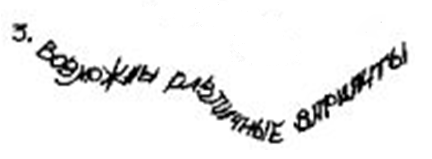 3. ВОЗМОЖНЫ РАЗЛИЧНЫЕ ВАРИАНТЫ